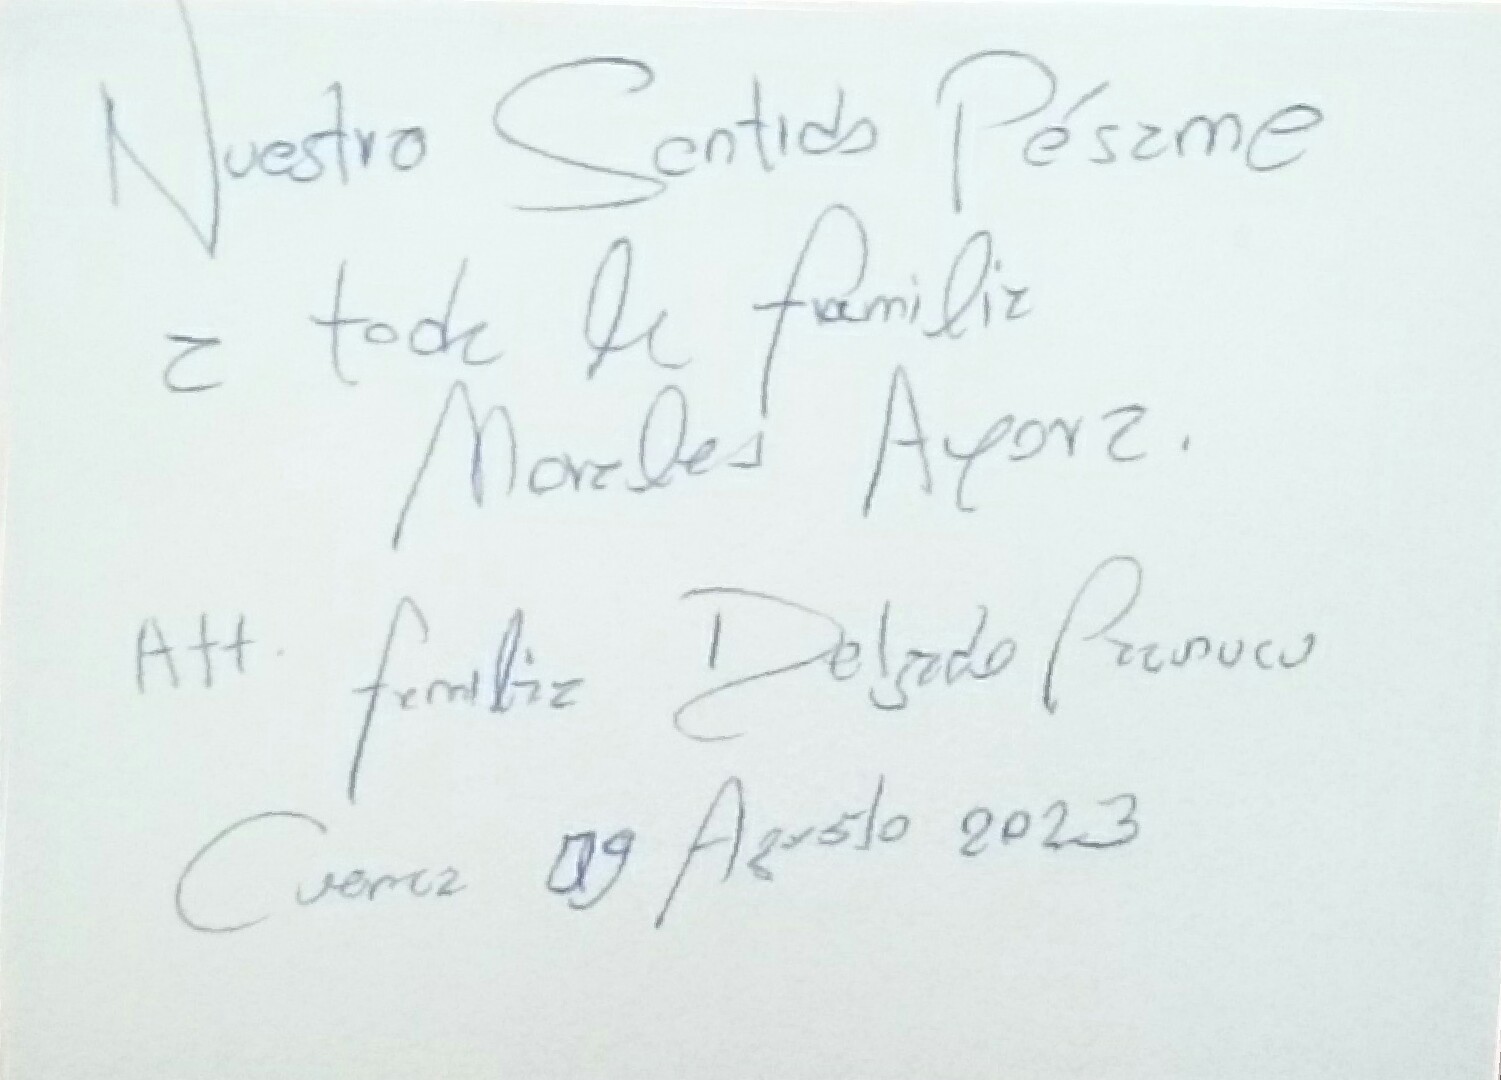 Nuestro Sentido Pésame
a toda la familia
Morales Ayora.
Att. familia Delgado
Cuenca 09 Agosto 2023